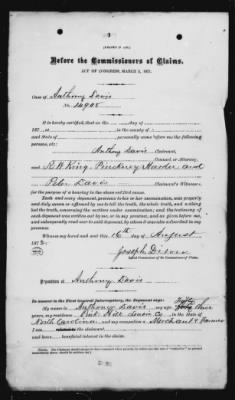 Before the Commissioners of Claims.
ACT OF CONGRESS, MARCH 3, 1871.
Case of Anthony Davis
No. 14905
I hereby certify, that on the day of
187 , at in the county of
and State of personally came before me the following persons,
viz:
Anthony Davis Claimant,
Counsel, or Attorney,
R. W. King, Pinckney Hardee and
Peter Davis Claimant's Witnesses,
for the purpose of a hearing in the above entitled cause.
Each and every deponent, previous to his or her examination, was properly
and duly sworn or affirmed by me to tell the truth, the whole truth, and nothing
but the truth, concerning the matters under examination; and the testimony of
each deponent was written out by me, or in my presence, and as given before me, and
subsequently read over to said deponent, by whom it was also subscribed in my
presence.
Witness my hand and seal this 16th day of August
187
Joseph
Special Commissioner of the Commissioners of Claims.
Deposition of Anthony Davis
In answer to the First General Interrogatory, the Deponent says:
My name is Anthony Davis my age Fifty three
years, my residence Pink Hill Lenoir Co, in the State of
North Carolina and my occupation a Merchant & Farmer
I am the claimant, and
have beneficial interest in the claim.